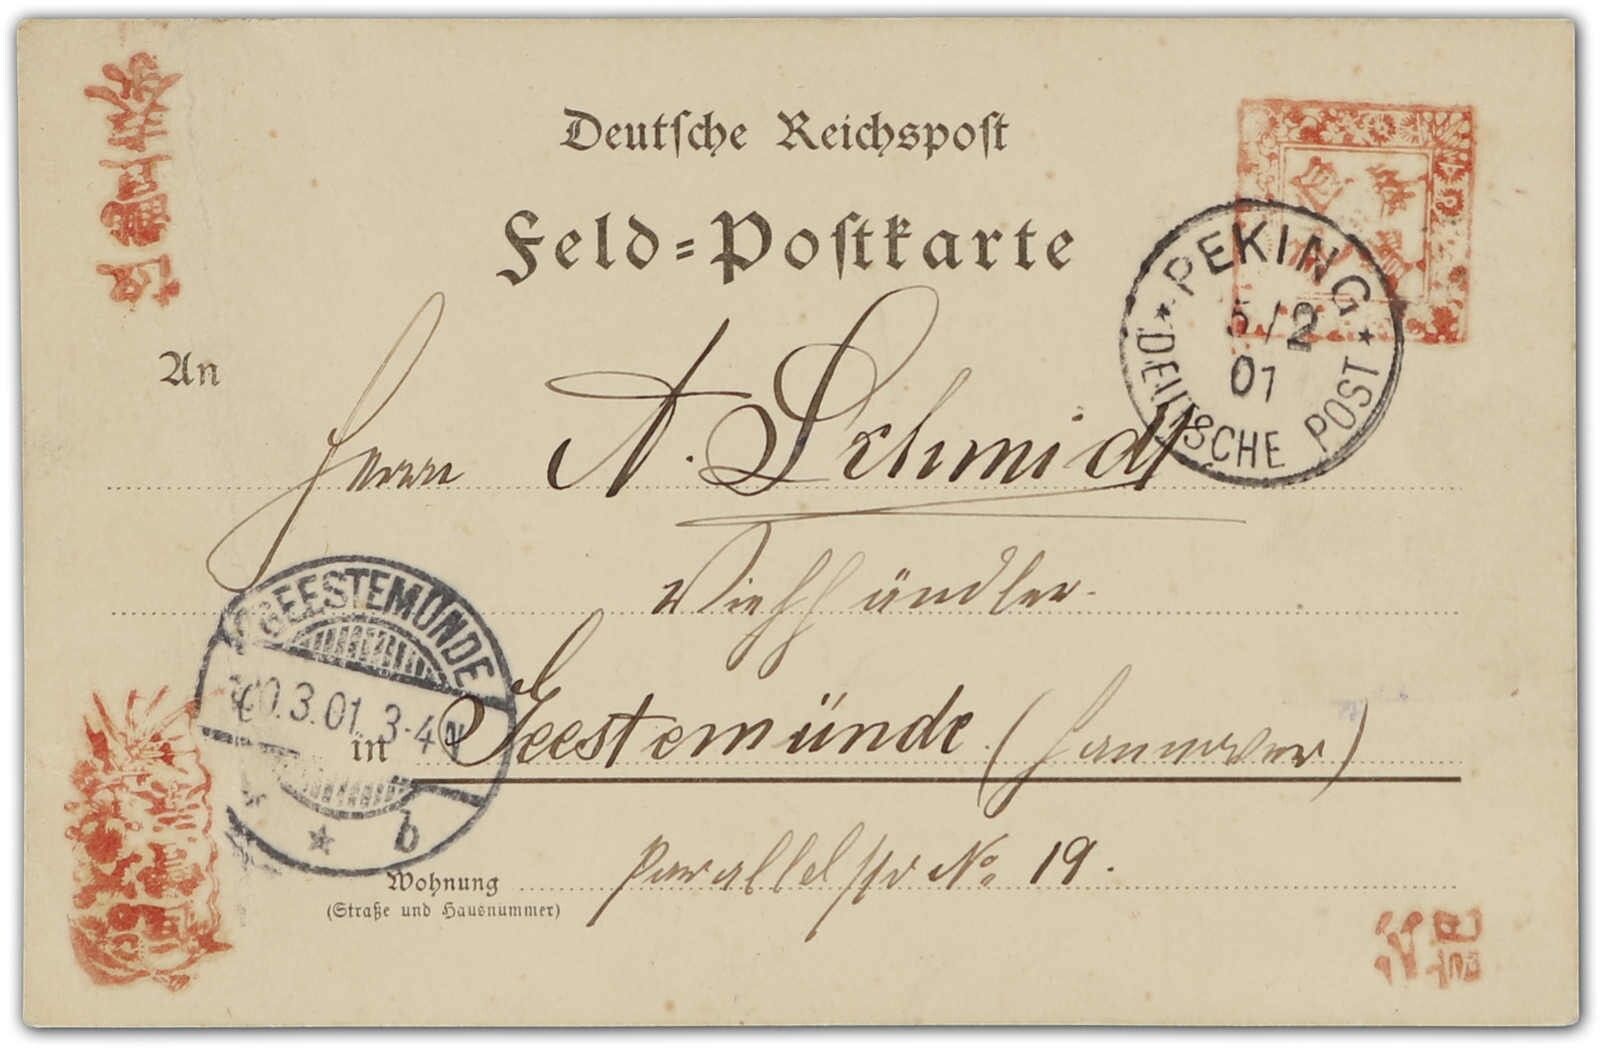 Deutsche Reichspost
Feld-Postkarte
PEKING
5/2
01
DEUTSCHE POST
An
Herrn A. Schmidt
Viehhändler.
GEESTEMÜNDE
.3.01. 3-4 N
* b
in Geestemünde (Hannover)
Wohnung Parallelstr No 19.
(Straße und Hausnummer)